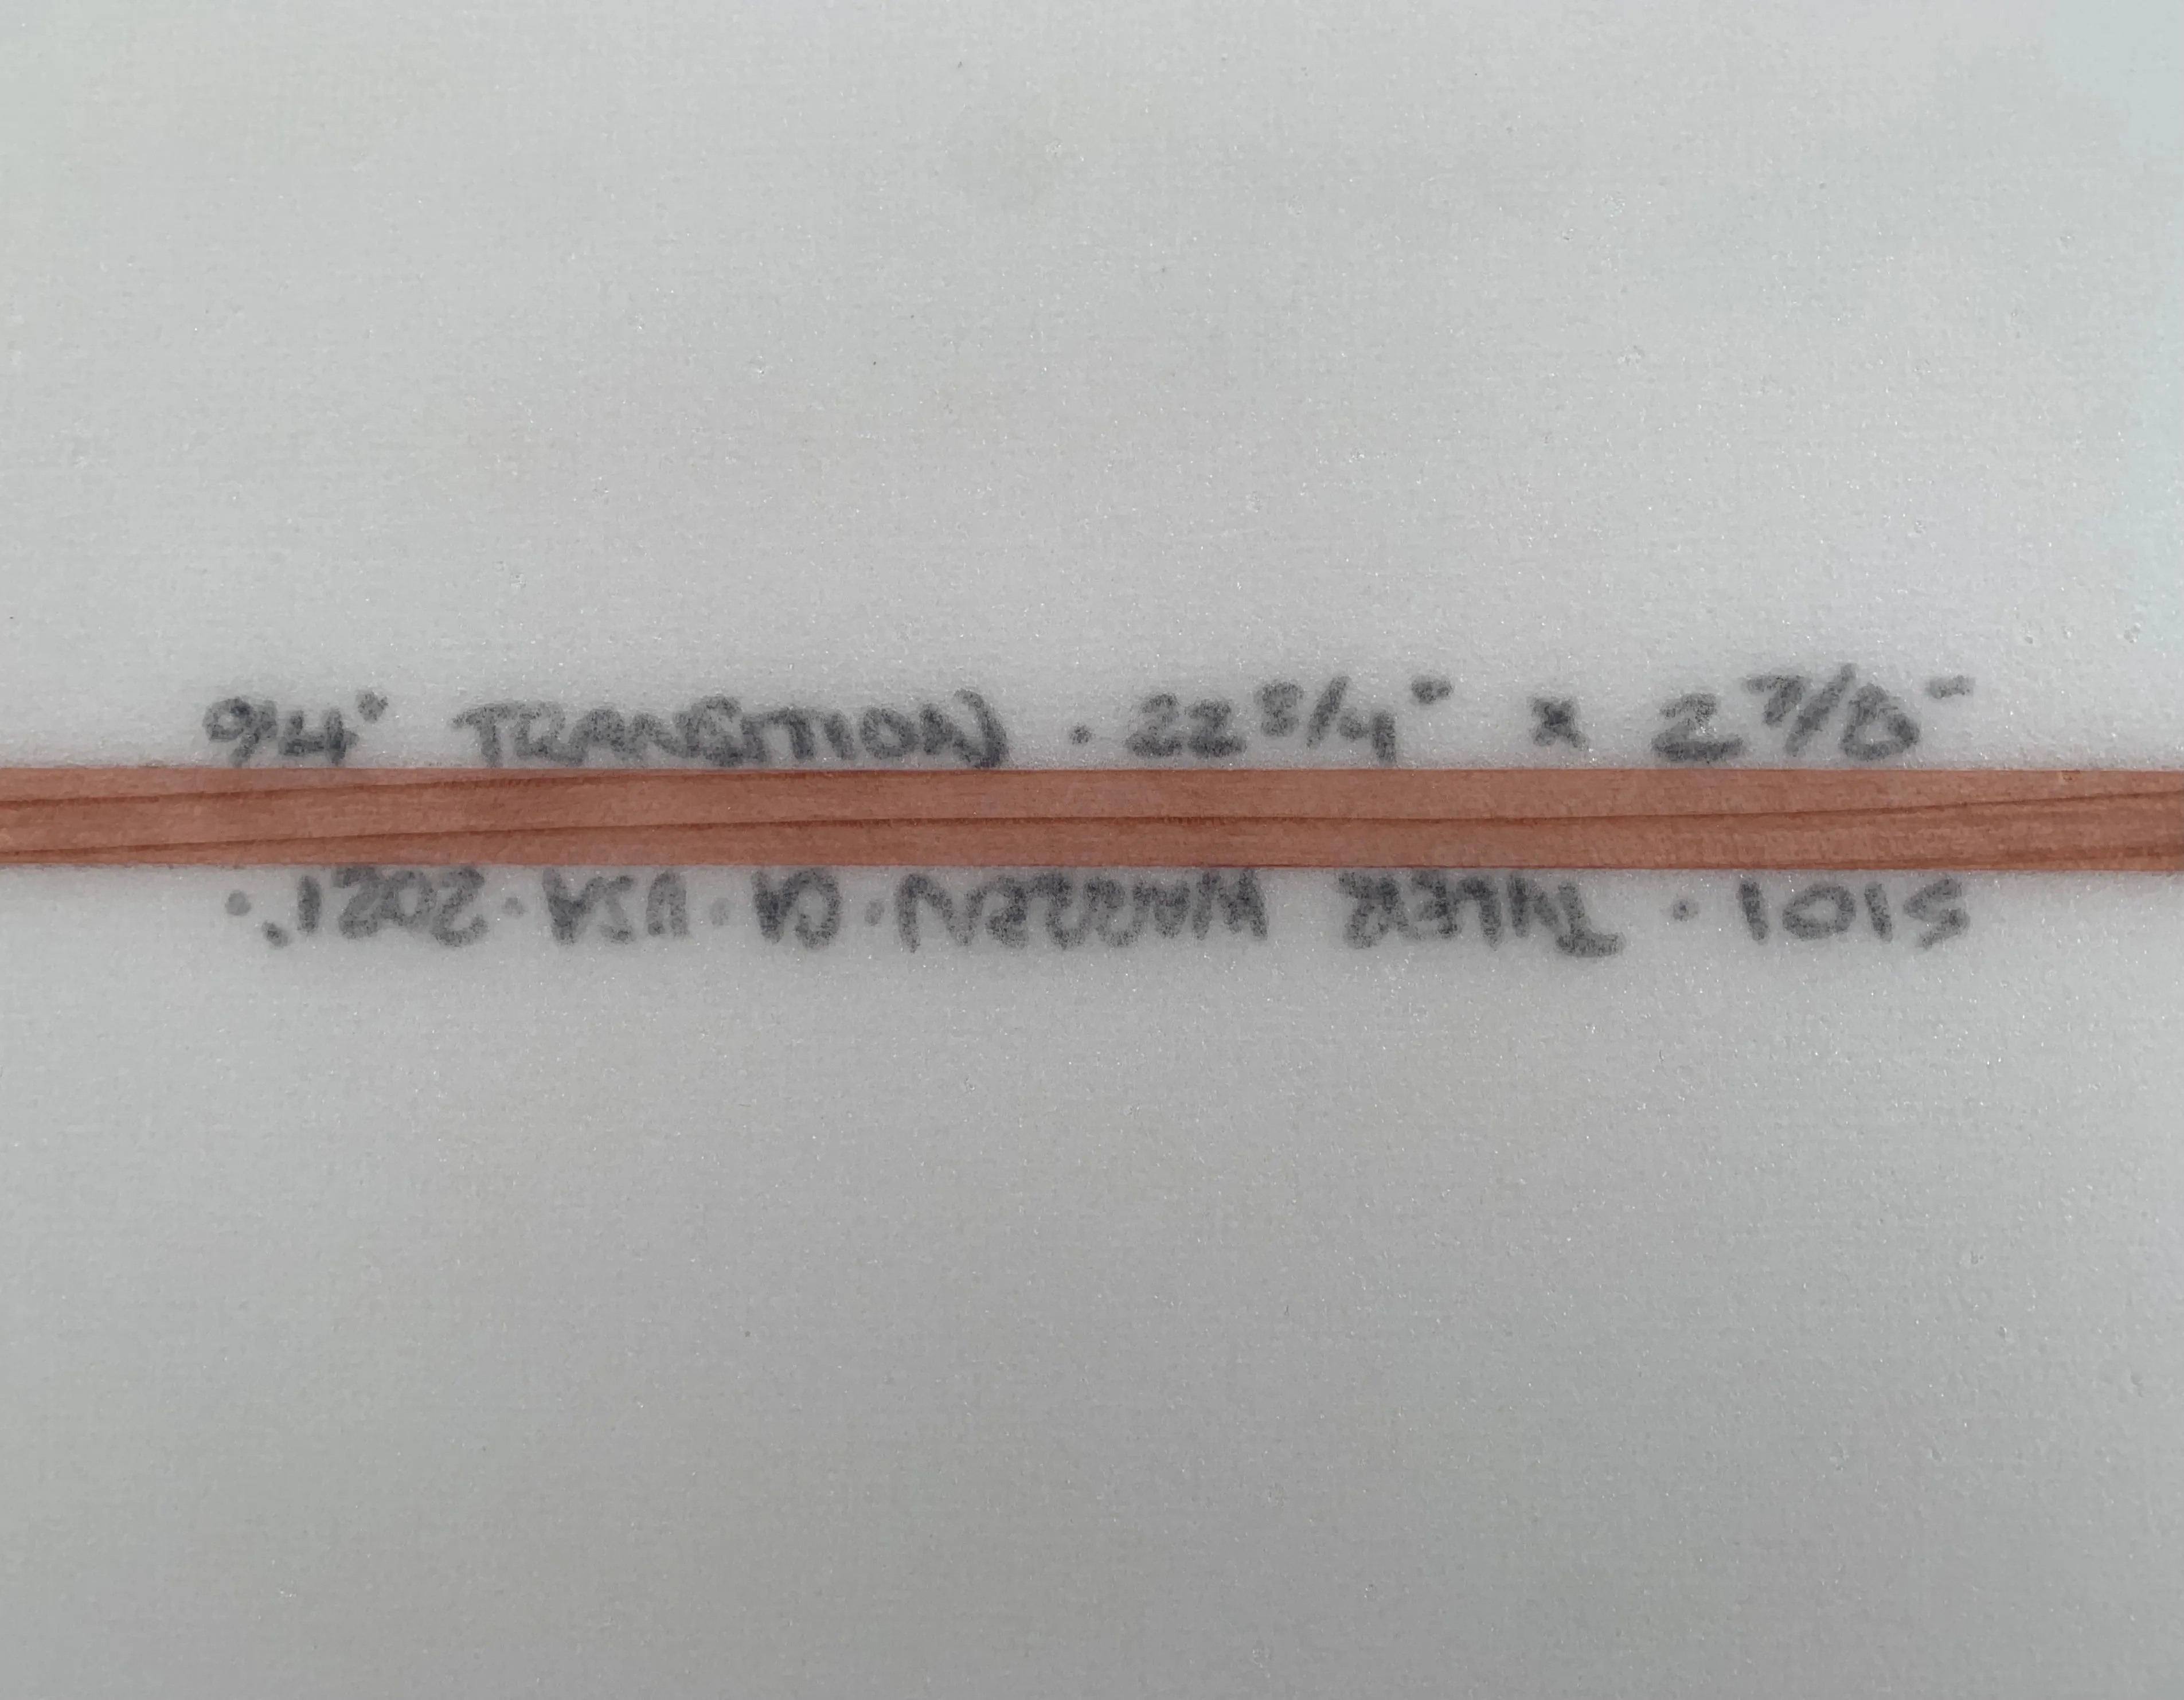 9'4" TRANSITION . 22 3/4" x 2 7/8"
S101 · TYLER WARREN · CA · USA · 2021 .